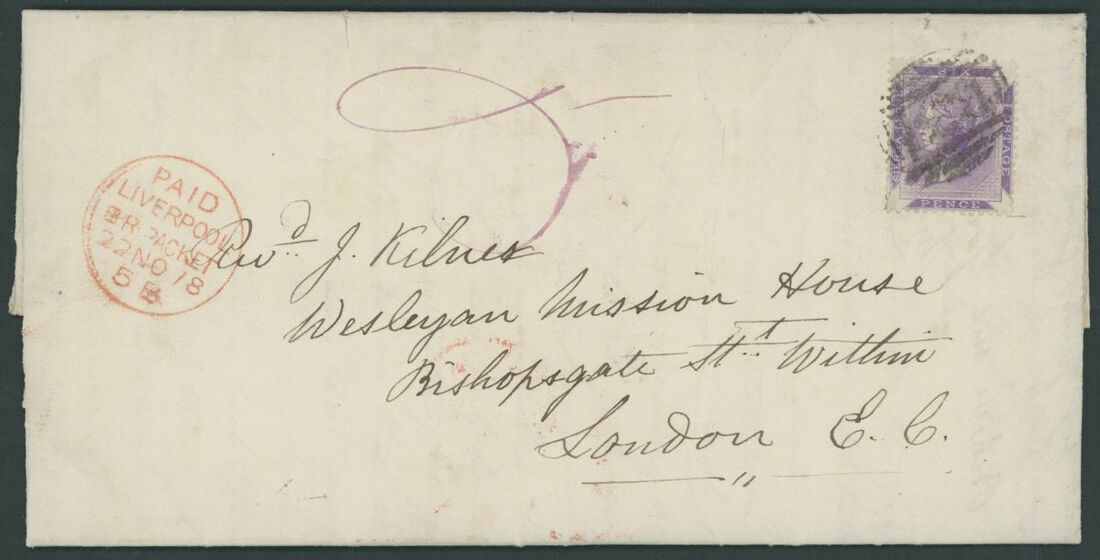 SIX
SIERRA LEONE
POSTAGE
PENCE
PAID
LIVERPOOL
BR. PACKET
22 NO 78
5 B
Revd. J. Kilner
Wesleyan Mission House
Bishopsgate St. Within
London E. C.